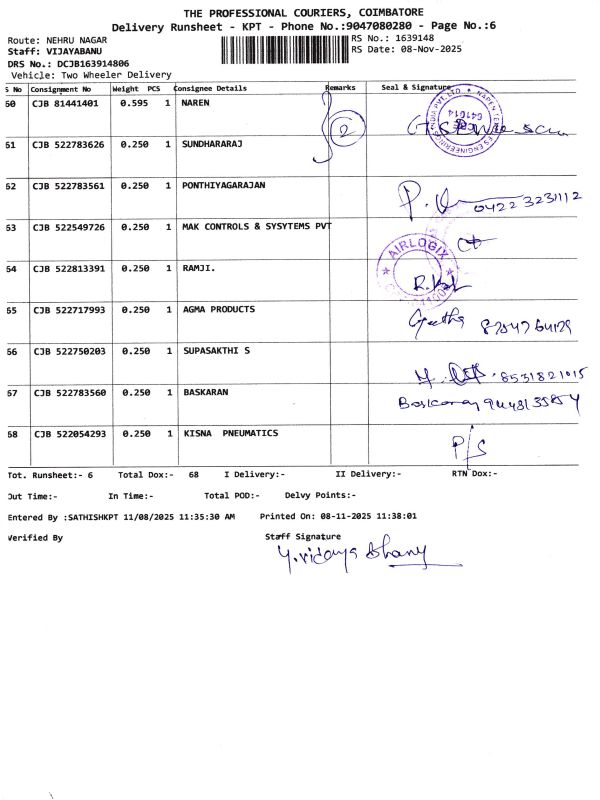 THE PROFESSIONAL COURIERS, COIMBATORE
Delivery Runsheet - KPT - Phone No.:9047080280 - Page No.:6
Route: NEHRU NAGAR
RS No.: 1639148
Staff: VIJAYABANU
RS Date: 08-Nov-2025
DRS No.: DCJB163914806
Vehicle: Two Wheeler Delivery
S No Consignment No Weight PCS Consignee Details Remarks Seal & Signature
60 CJB 81441401 0.595 1 NAREN 2
641014
61 CJB 522783626 0.250 1 SUNDHARARAJ
62 CJB 522783561 0.250 1 PONTHIYAGARAJAN
0422 3231112
63 CJB 522549726 0.250 1 MAK CONTROLS & SYSYTEMS PVT
AIRLOGIX
64 CJB 522813391 0.250 1 RAMJI.
65 CJB 522717993 0.250 1 AGMA PRODUCTS
Geetha
66 CJB 522750203 0.250 1 SUPASAKTHI S
8531821015
67 CJB 522783560 0.250 1 BASKARAN
Baskaran
68 CJB 522054293 0.250 1 KISNA PNEUMATICS
P/S
Tot. Runsheet:- 6 Total Dox:- 68 I Delivery:- II Delivery:- RTN Dox:-
Out Time:- In Time:- Total POD:- Delvy Points:-
Entered By :SATHISHKPT 11/08/2025 11:35:30 AM Printed On: 08-11-2025 11:38:01
Verified By Staff Signature
Y.vidaya Bhany